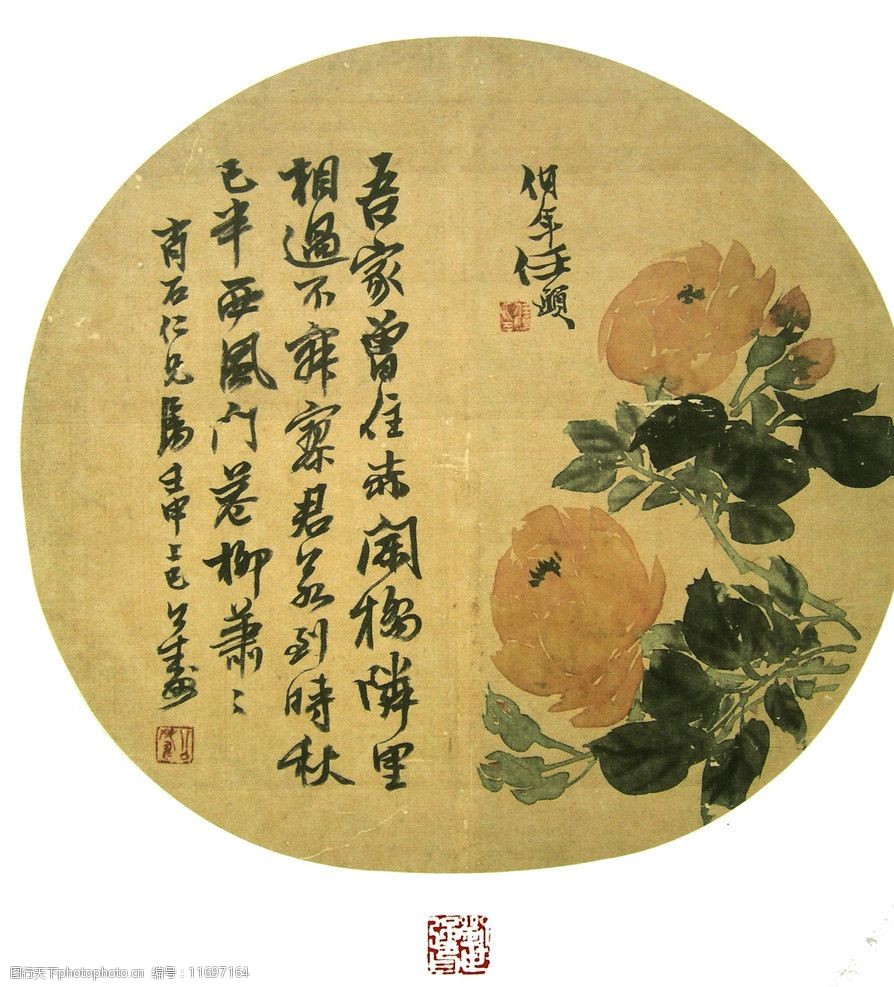 伯年任頤
吾家曾住赤闌橋隣里
相過不寂寥君若到時秋
已半西風門巷柳蕭〻
石仁兄属壬申上巳公壽
图行天下photophoto.cn 编号:11697164